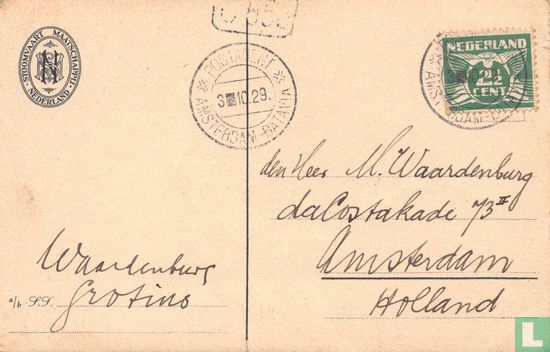 STOOMVAART MAATSCHAPPIJ NEDERLAND
POSTAGENT
3 10.29.
AMSTERDAM-BATAVIA
NEDERLAND
2½
CENT
den Heer M. Waardenburg
da Costakade 73 II
Amsterdam
Holland
Waardenburg
a/b S.S. Grotius